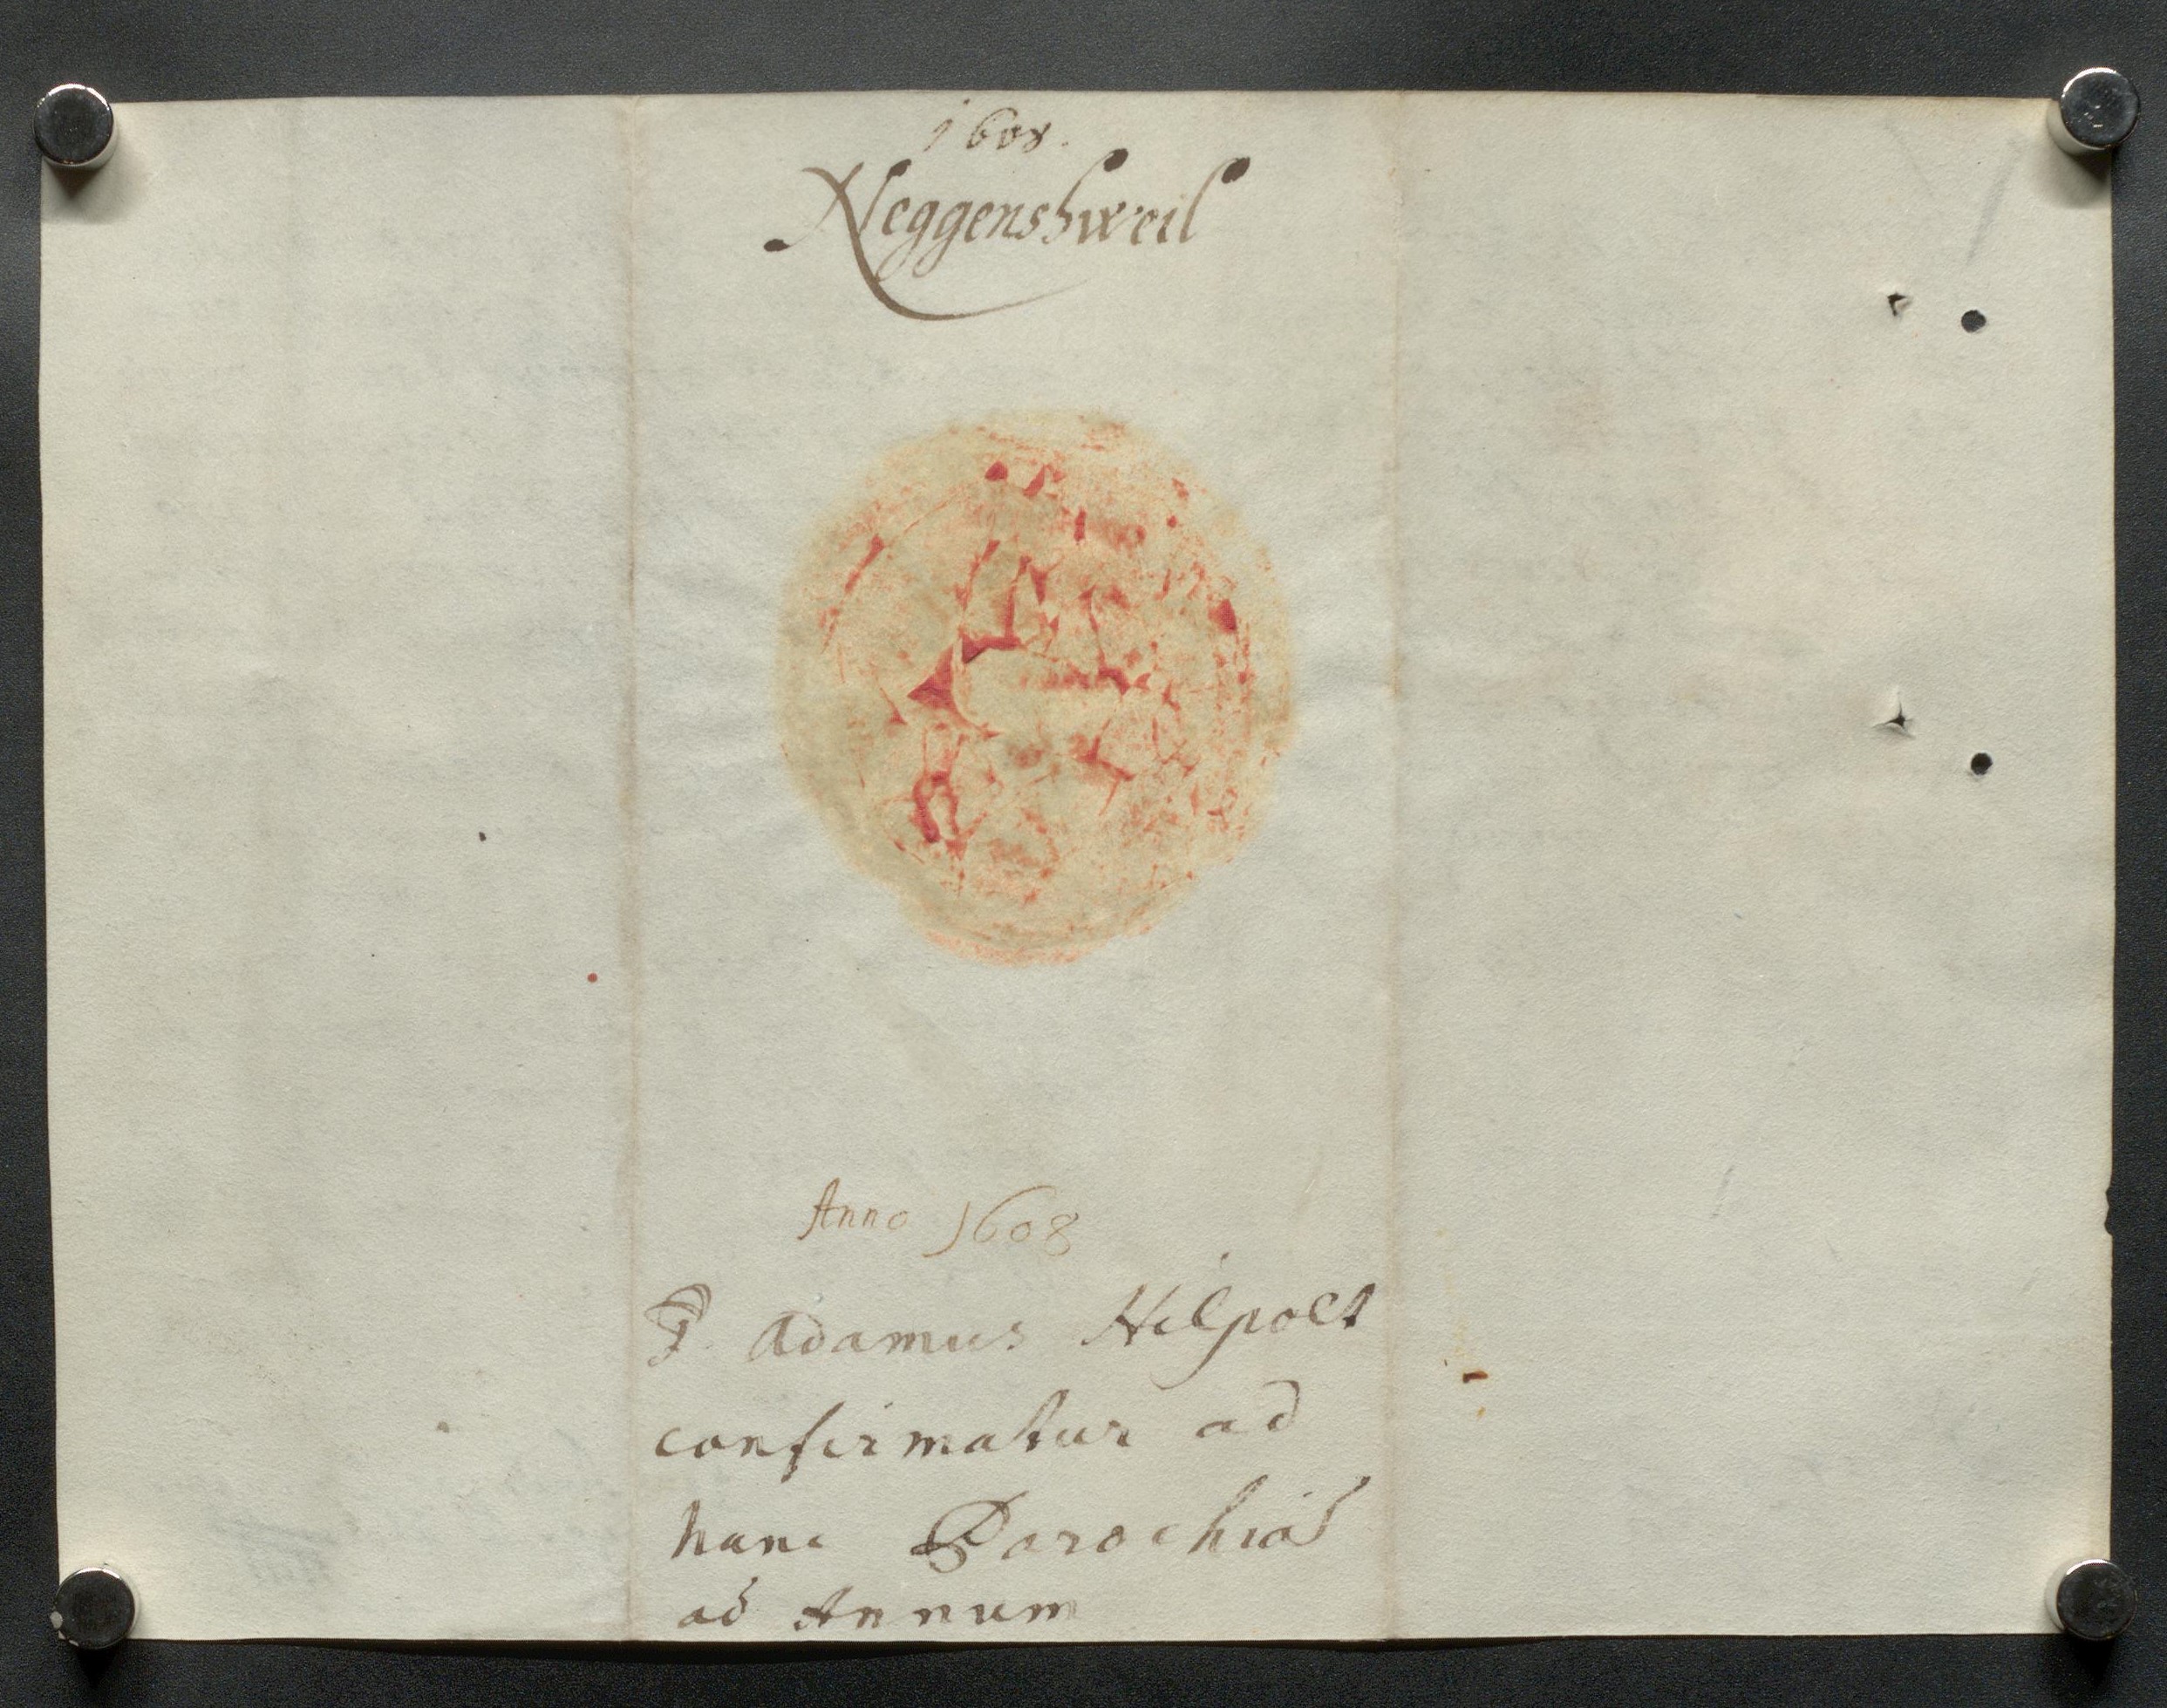 1608.
Neggenshweil
Anno 1608
P. Adamus Hilpolt
confirmatur ad
hanc Parochiã
ad Annum